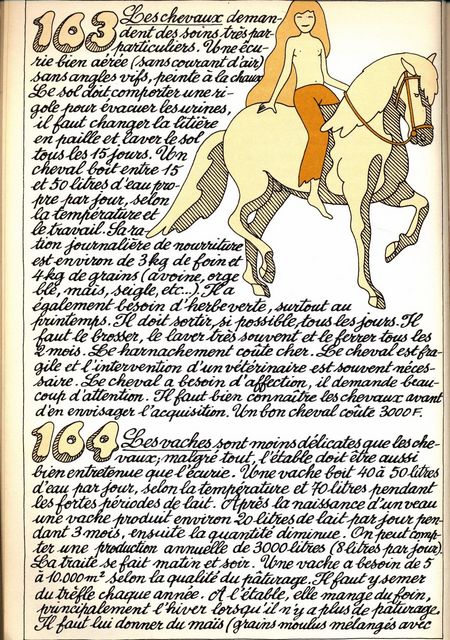 163 Les chevaux deman-
dent des soins très par-
particuliers. Une écu-
rie bien aérée (sans courant d'air)
sans angles vifs, peinte à la chaux
Le sol doit comporter une ri-
gole pour évacuer les urines,
il faut changer la litière
en paille et laver le sol
tous les 15 jours. Un
cheval boit entre 15
et 50 litres d'eau pro-
pre par jour, selon
la température et
le travail. Sa ra-
tion journalière de nourriture
est environ de 3 kg de foin et
4 kg de grains (avoine, orge
blé, maïs, seigle, etc...) Il a
également besoin d'herbe verte, surtout au
printemps. Il doit sortir, si possible, tous les jours. Il
faut le brosser, le laver très souvent et le ferrer tous les
2 mois. Le harnachement coûte cher. Le cheval est fra-
gile et l'intervention d'un vétérinaire est souvent néces-
saire. Le cheval a besoin d'affection, il demande beau-
coup d'attention. Il faut bien connaître les chevaux avant
d'en envisager l'acquisition. Un bon cheval coûte 3000 F.
164 Les vaches sont moins délicates que les che-
vaux; malgré tout, l'étable doit être aussi
bien entretenue que l'écurie. Une vache boit 40 à 50 litres
d'eau par jour, selon la température et 70 litres pendant
les fortes périodes de lait. Après la naissance d'un veau
une vache produit environ 20 litres de lait par jour pen-
dant 3 mois, ensuite la quantité diminue. On peut comp-
ter une production annuelle de 3000 litres (8 litres par jour)
La traite se fait matin et soir. Une vache a besoin de 5
à 10.000 m² selon la qualité du pâturage. Il faut y semer
du trèfle chaque année. A l'étable, elle mange du foin,
principalement l'hiver lorsqu'il n'y a plus de pâturage.
Il faut lui donner du maïs (grains moulus mélangés avec